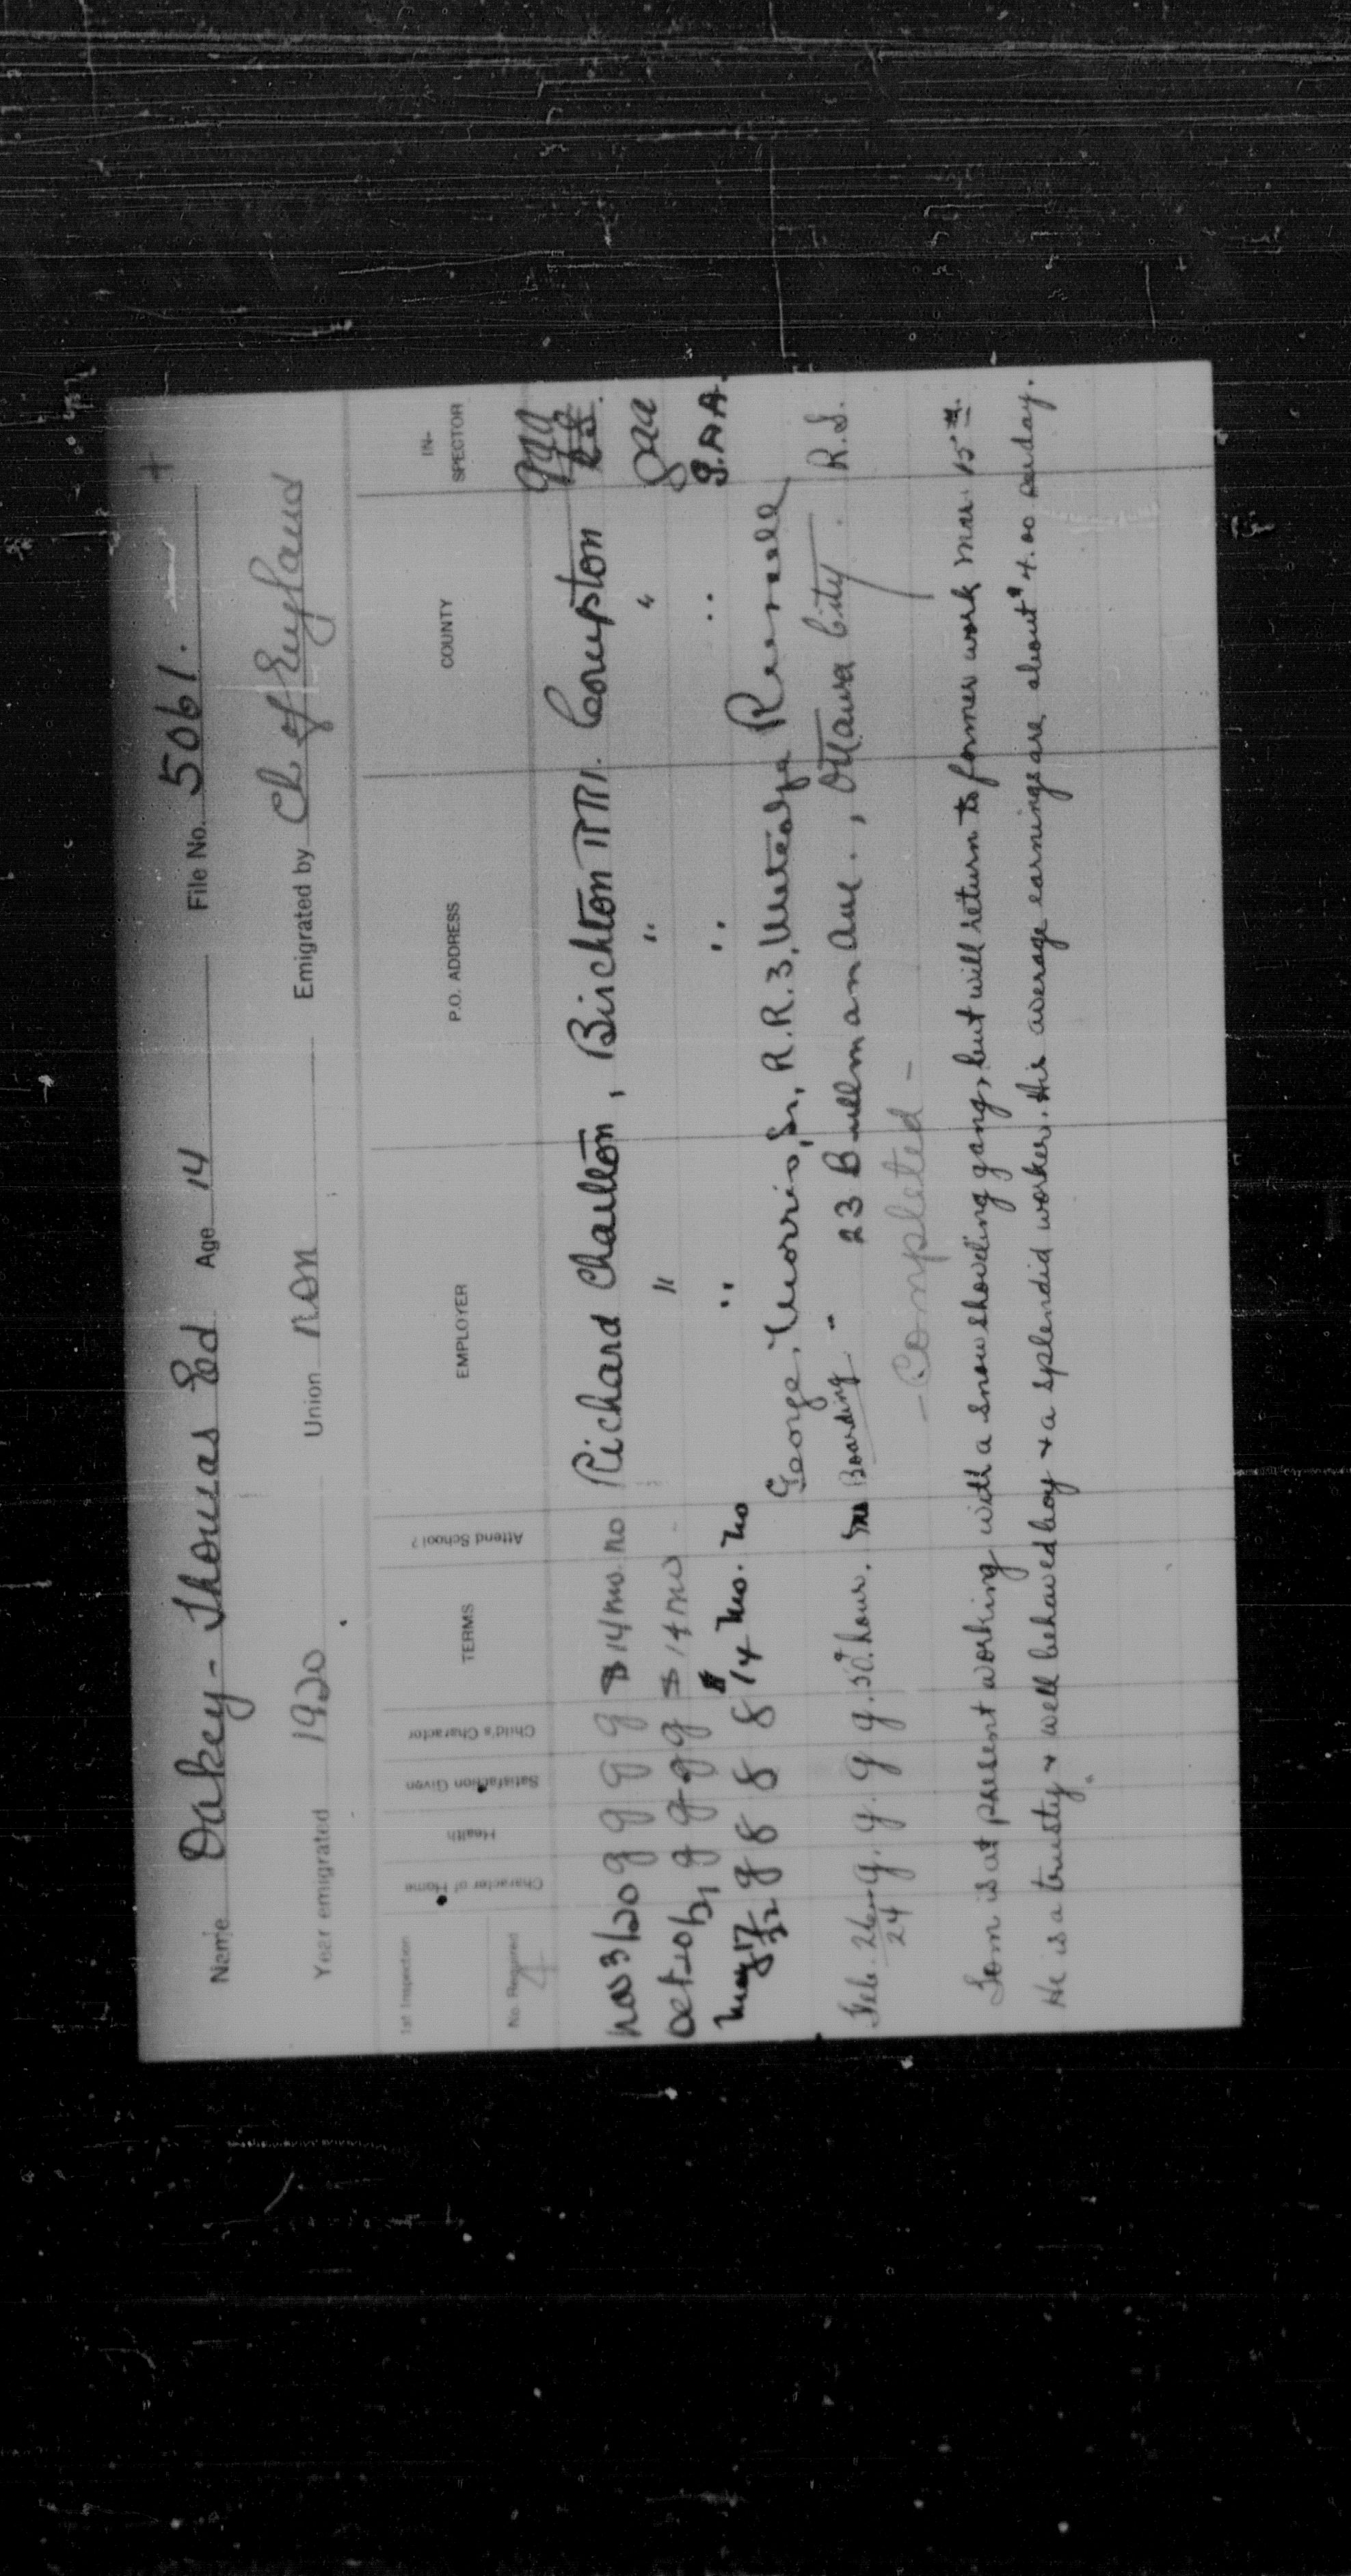 Name Oakey - Thomas Ed Age 14 File No. 5061. +
Year emigrated 1920 Union non Emigrated by Ch of England
1st Inspection Character of Home Health Satisfaction Given Child's Character TERMS Attend School? EMPLOYER P.O. ADDRESS COUNTY IN-SPECTOR
No. Required 4
Nov 3/20 g g g g $14 mo. no Richard Charlton, Birchton Compton
Oct 20/21 g g g g $14 mo " " "
May 17/22 g g g g 14 Mo. No " " " G.A.A.
George Morris, Sr, R.R.3, Metcalfe Russell
Feb. 26/24 g. g. g g. 50¢ hour. Boarding - 23 Bullman Ave., Ottawa City. R.S.
- Completed -
Tom is at present working with a snow shoveling gang, but will return to former work Mar. 15th.
He is a trusty & well behaved boy & a splendid worker. His average earnings are about $4.00 per day.